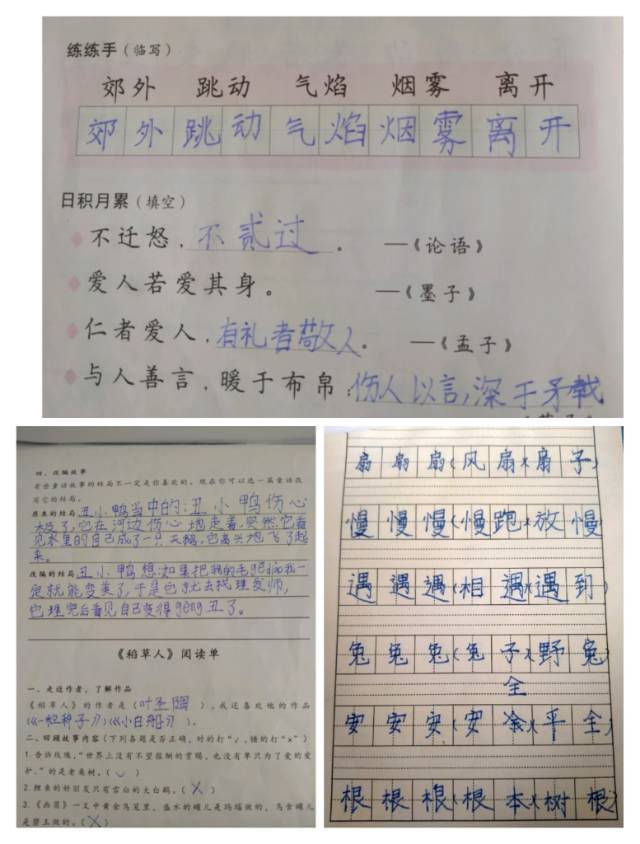 练练手（临写）
郊外 跳动 气焰 烟雾 离开
郊外跳动气焰烟雾离开
日积月累（填空）
不迁怒，不贰过。 —《论语》
爱人若爱其身。 —《墨子》
仁者爱人，有礼者敬人。 —《孟子》
与人善言，暖于布帛；伤人以言，深于矛戟
四、改编故事
有些童话故事的结局不一定是你喜欢的，现在你可以选一篇童话改
写它的结局。
原来的结局 丑小鸭当中的：丑小鸭伤心
极了，它在河边伤心地走着，突然它看
见水里的自己成了一只天鹅，它高兴地飞了起
来。
改编的结局 丑小鸭想：如果把我的毛
定就能变美了，于是它就去找理发师，
它理完后看见自己变得gèng丑了。
《稻草人》阅读单
一、走近作者，了解作品
《稻草人》的作者是（叶圣陶），我还喜欢他的作品
（《一粒种子》）（《小白船》）。
二、回顾故事内容（下列各题是否正确，对的打“√，错的打“×”）
1.告诉玫瑰，“世界上没有不望报酬的赏赐，也没有单只为了爱的爱
护。”的是老桑树。（√）
2.鲤鱼的好朋友只有雪白的大白鹅。（X）
3.《画眉》一文中黄金鸟笼里，盛水的罐儿是玛瑙做的，鸟食罐儿
是碧玉做的。（X）
扇扇扇（风扇）（扇子）
慢慢慢（慢跑）（放慢）
遇遇遇（相遇）（遇到）
兔兔兔（兔子）（野兔）
全
安安安（安）（平全）
根根根（根本）（树根）